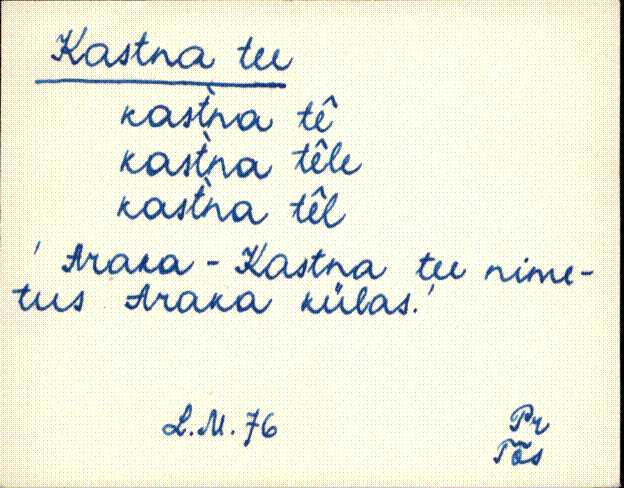 Kastna tee
kast̀na tê
kast̀na têle
kast̀na têl
' Araka - Kastna tee nime-
tus Araka külas.'
L.M. 76
Pr
Tõs